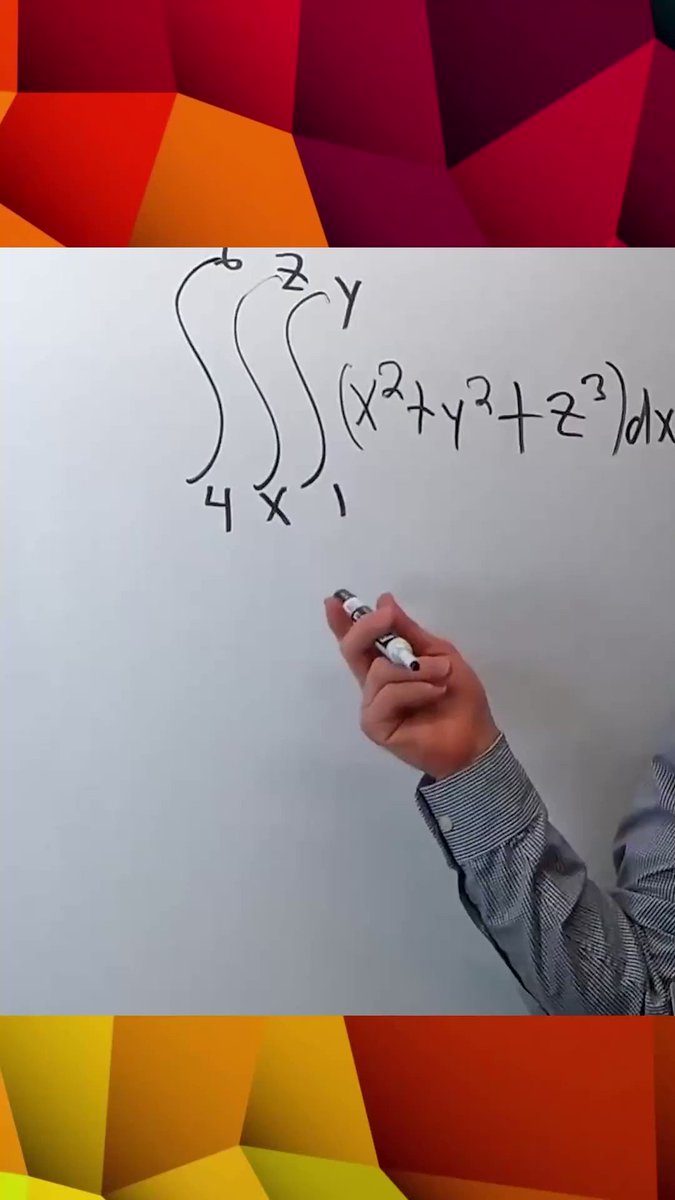 ∫₄⁶ ∫ₓᶻ ∫₁ʸ (x²+y²+z³)dx